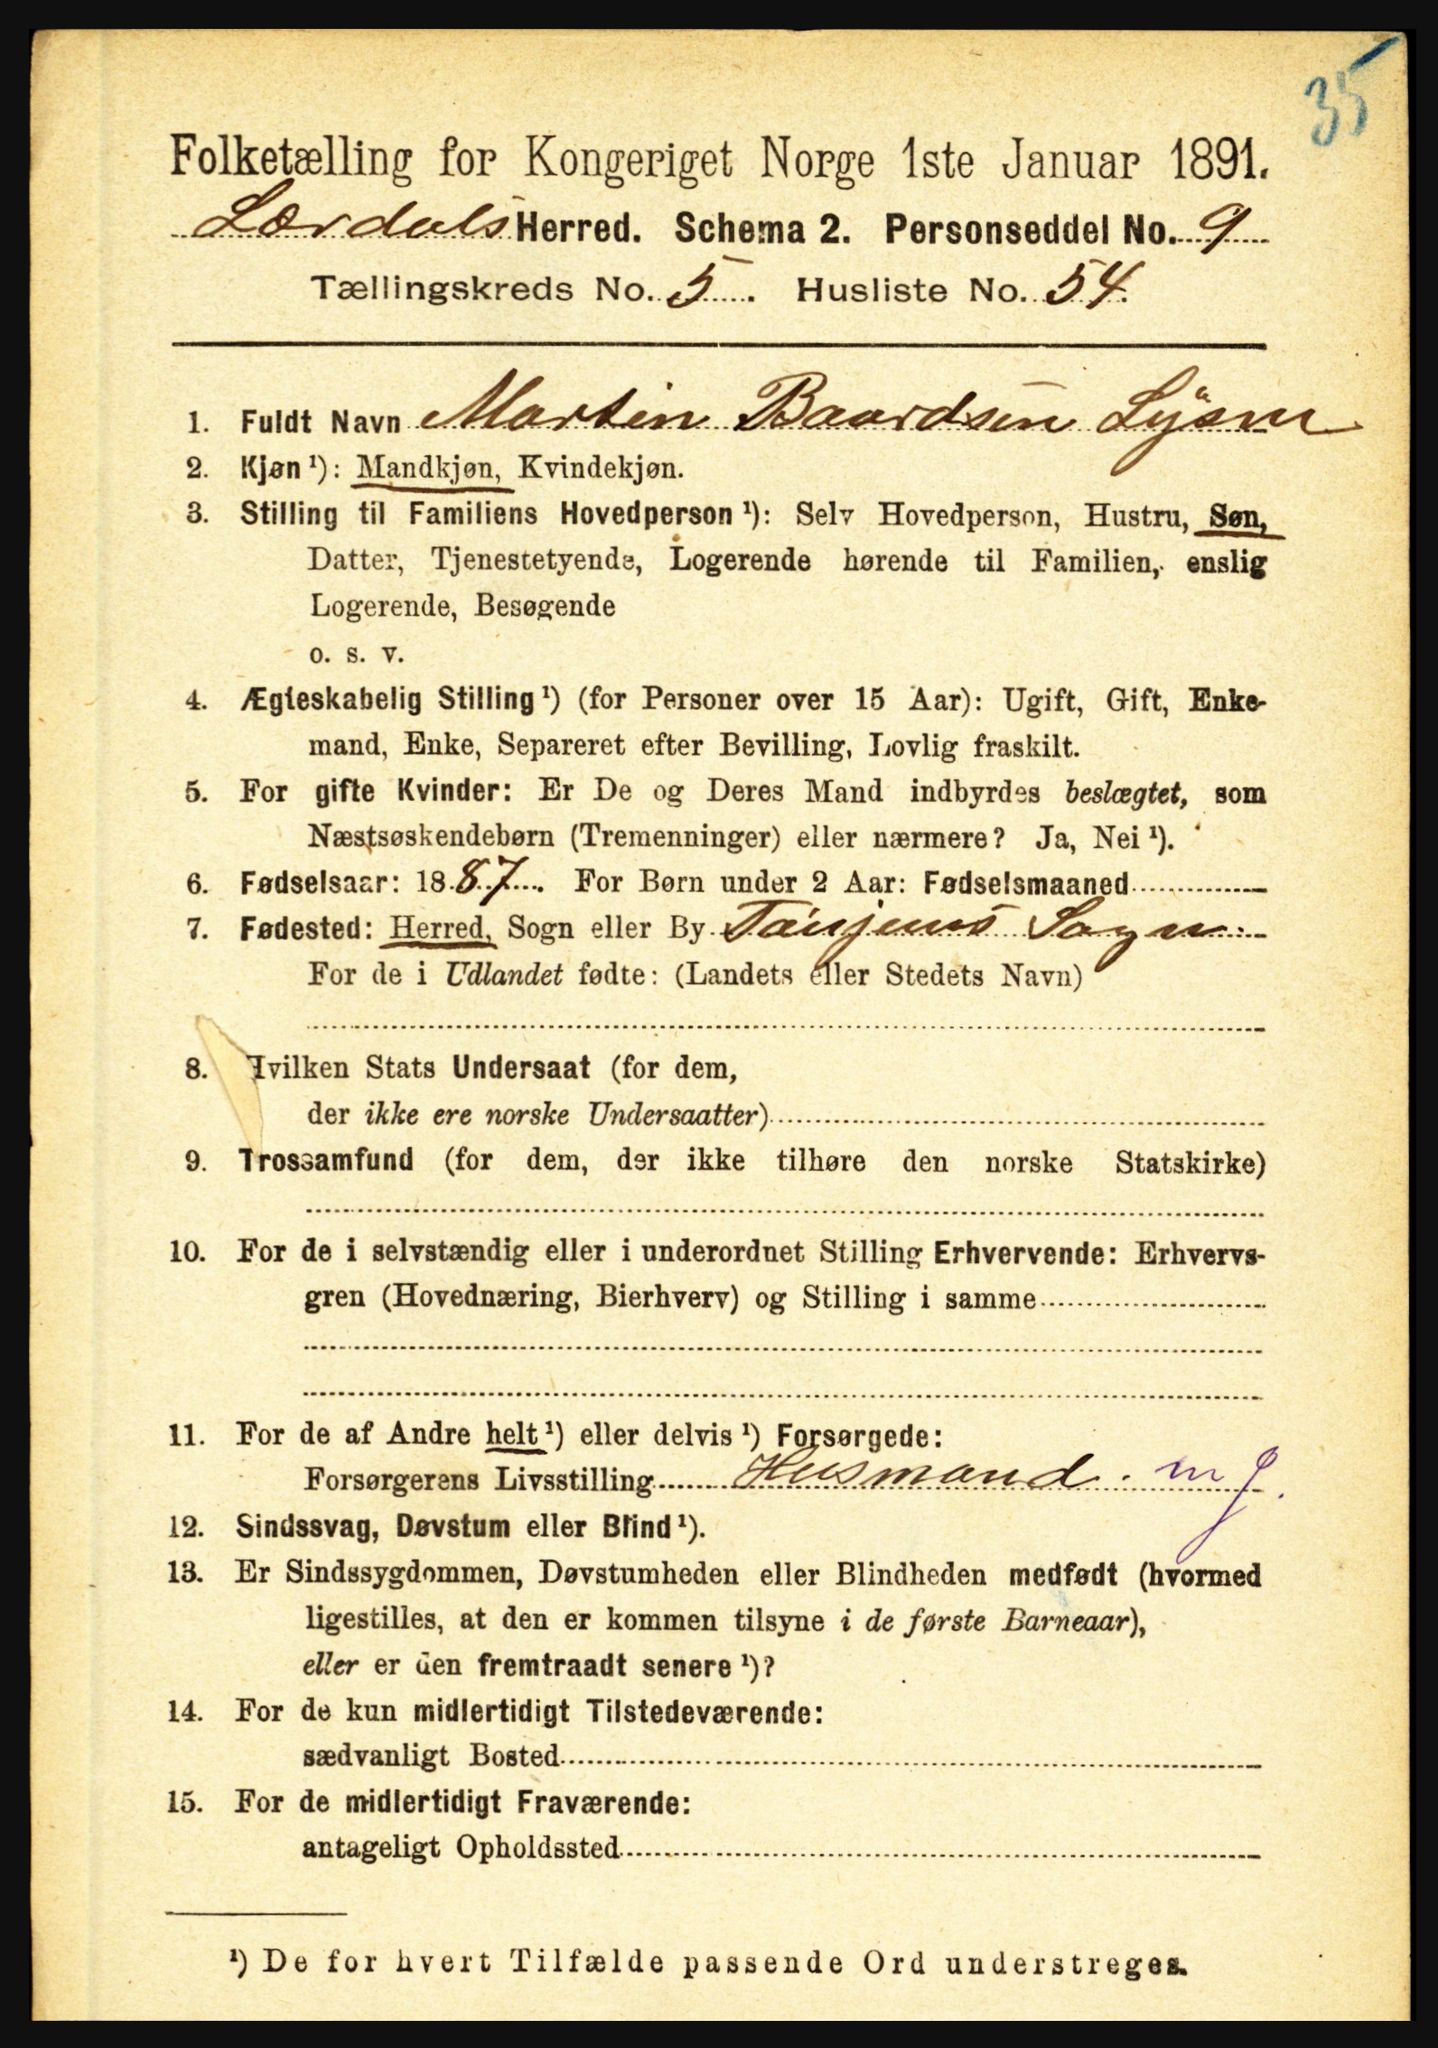 35
Folketælling for Kongeriget Norge 1ste Januar 1891.
Lærdals Herred. Schema 2. Personseddel No. 9
Tællingskreds No. 5. Husliste No. 54.
1. Fuldt Navn Martin Baardsen
2. Kjøn ¹): Mandkjøn, Kvindekjøn.
3. Stilling til Familiens Hovedperson ¹): Selv Hovedperson, Hustru, Søn,
Datter, Tjenestetyende, Logerende hørende til Familien, enslig
Logerende, Besøgende
o. s. v.
4. Ægteskabelig Stilling ¹) (for Personer over 15 Aar): Ugift, Gift, Enke-
mand, Enke, Separeret efter Bevilling, Lovlig fraskilt.
5. For gifte Kvinder: Er De og Deres Mand indbyrdes beslægtet, som
Næstsøskendebørn (Tremenninger) eller nærmere? Ja, Nei ¹).
6. Fødselsaar: 1887. For Børn under 2 Aar: Fødselsmaaned
7. Fødested: Herred, Sogn eller By Tønjums Sogn
For de i Udlandet fødte: (Landets eller Stedets Navn)
8. Hvilken Stats Undersaat (for dem,
der ikke ere norske Undersaatter)
9. Trossamfund (for dem, der ikke tilhøre den norske Statskirke)
10. For de i selvstændig eller i underordnet Stilling Erhvervende: Erhvervs-
gren (Hovednæring, Bierhverv) og Stilling i samme
11. For de af Andre helt ¹) eller delvis ¹) Forsørgede:
Forsørgerens Livsstilling Husmand. m J.
12. Sindssvag, Døvstum eller Blind ¹).
13. Er Sindssygdommen, Døvstumheden eller Blindheden medfødt (hvormed
ligestilles, at den er kommen tilsyne i de første Barneaar),
eller er den fremtraadt senere ¹)?
14. For de kun midlertidigt Tilstedeværende:
sædvanligt Bosted
15. For de midlertidigt Fraværende:
antageligt Opholdssted
¹) De for hvert Tilfælde passende Ord understreges.